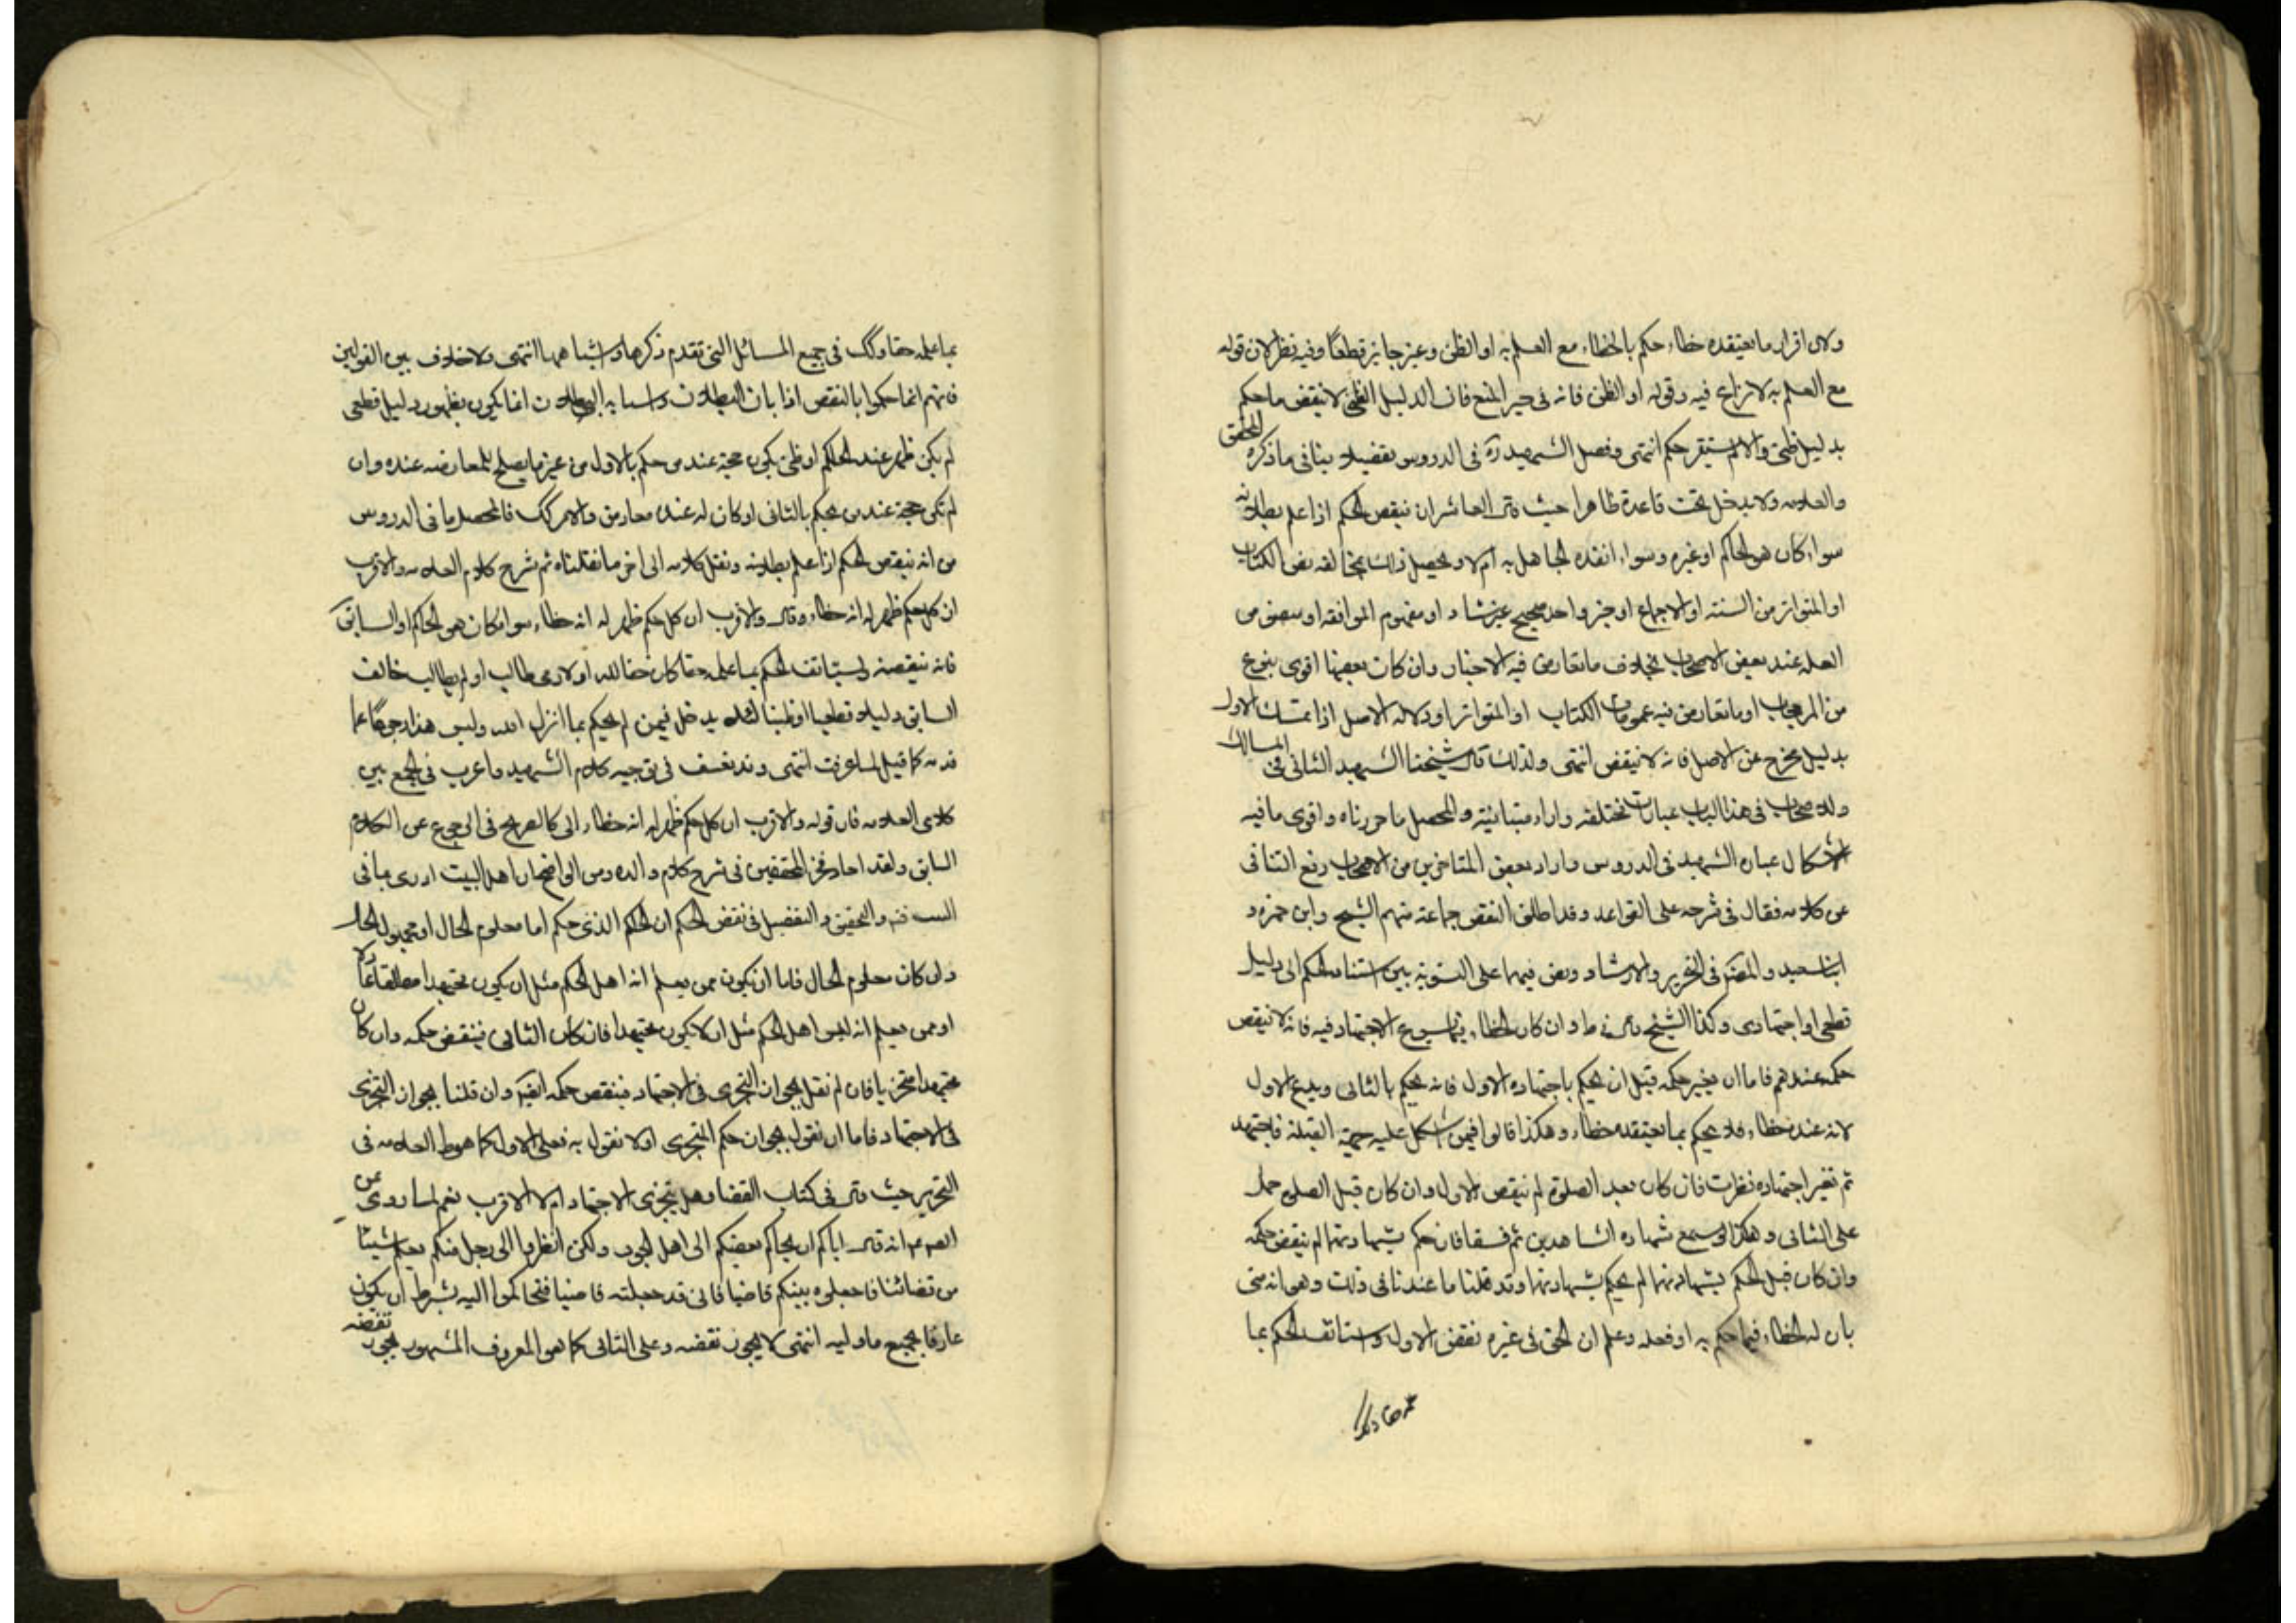 ولان اقرار ما يعتقده خطاء حكم بالخطاء مع العلم به او الظن وغير جايز قطعًا وفيه نظر لان قوله
مع العلم به لا نزاع فيه وقوله او الظن فانه فى حيز المنع فان الدليل الظنى لا ينقض ما حكم
بدليل ظنى والا لم يستقر حكم انتهى وفصل الشهيد ره فى الدروس تفصيلا ينافى ما ذكره المحقق
والعلامه ولا يدخل تحت قاعدة ظاهرا حيث قال العاشر ان ينقض الحكم اذا علم بطلانه
سواء كان هو الحاكم او غيره وسواء انفذه الجاهل به ام لا ويحصل ذلك بمخالفه نص الكتاب
او المتواتر من السنه او الاجماع او خبر واحد صحيح غير شاذ او مفهوم الموافقه او منصوص
العله عند بعض الاصحاب بخلاف ما تعارض فيه الاخبار وان كان بعضها اقوى بنوع
من المرجحات او ما تعارض فيه عمومات الكتاب او المتواتر او دلاله الاصل اذا تمسك الاول
بدليل مخرج عن الاصل فانه لا ينقض انتهى ولذلك قال شيخنا الشهيد الثانى فى المسالك
وللاصحاب فى هذا الباب عبارات مختلفه واراء متباينة والمحصل ما حررناه واقوى ما فيه
الاشكال عباره الشهيد فى الدروس واراد بعض المتاخرين من الاصحاب رفع التنافى
عن كلامه فقال فى شرحه على القواعد وقد اطلق النقض جماعة منهم الشيخ وابن حمزه و
ابن سعيد والمصنف فى التحرير والارشاد ونص فيهما على التسوية بين استناد الحكم الى دليل
قطعى او اجتهادى وكذا الشيخ قال فى ط وان كان الخطاء فيما يسوغ الاجتهاد فيه فانه لا ينقض
حكمه عندهم فاما ان تغير حكمه قبل ان يحكم باجتهاده الاول فانه يحكم بالثانى ويدع الاول
لانه عنده خطاء فلا يحكم بما يعتقده خطاء وهكذا قالوا فيمن اشكل عليه جهة القبلة فاجتهد
ثم تغير اجتهاده نظرت فان كان بعد الصلوة لم ينقض الاول وان كان قبل الصلوة عمل
على الثانى وهكذا لو سمع شهاده الشاهدين ثم فسقا فان حكم بشهادتهما لم ينقض حكمه
وان كان قبل الحكم بشهادتهما لم يحكم بشهادتهما وقد قلنا ما عندنا فى ذلك وهو انه متى
بان له الخطاء فيما حكم به او فعله وعلم ان الحق فى غيره نقض الاول واستانف الحكم بما
بما علمه حقا وكك فى جميع المسائل التى تقدم ذكرها واشباهها انتهى ولا خلاف بين القولين
فانهم انما حكموا بالنقض اذا بان البطلان واستبانه البطلان انما يكون بظهور دليل قطعى
لم يكن ظهر عند الحاكم او ظنى يكون حجة عند من حكم بالاول من غير ما يصلح للمعارضه عنده وان
لم تكن حجة عند من يحكم بالثانى او كان له عنده معارض والامر كك فالمحصل ما فى الدروس
من انه ينقض الحكم اذا علم بطلانه ونقل كلامه الى اخر ما نقلناه ثم شرح كلام العلامه والاقرب
ان كل حكم ظهر له انه خطاء وقال والاقرب ان كل حكم ظهر له انه خطاء سواء كان هو الحاكم او السابق
فانه ينقضه ويستانف الحكم بما علمه حقا كان حقا لله او لادمى طالب او لم يطالب خالف
السابق دليلا قطعيا او ظنيا لئلا يدخل فيمن لم يحكم بما انزل الله وليس هذا رجوعًا عما
قدمه كما قيل لما عرفت انتهى وقد تعسف فى توجيه كلام الشهيد واغرب فى الجمع بين
كلامى العلامه فان قوله والاقرب ان كل حكم ظهر له انه خطاء الى كالصريح فى الرجوع عن الكلام
السابق ولقد اجاد فخر المحققين فى شرح كلام والده ومن الواضح ان اهل البيت ادرى بما فى
البيت فنه والتحقيق والتفصيل فى نقض الحكم ان الحاكم الذى حكم اما معلوم الحال او مجهول الحال
وان كان معلوم الحال فاما ان يكون ممن يعلم انه اهل الحكم مثل ان يكون مجتهدا مطلقا عا
او ممن يعلم انه ليس اهل الحكم مثل ان لا يكون مجتهدا فان كان الثانى فينقض حكمه وان كان
مجتهدا متجزيا فان لم نقل بجواز التجزى فى الاجتهاد فينقض حكمه ايضا وان قلنا بجواز التجزى
فى الاجتهاد فاما ان نقول بجواز حكم المتجزى او لا نقول به فعلى الاول كما هو ط العلامه فى
التحرير حيث قال فى كتاب القضاء وهل يتجزى الاجتهاد ام لا الاقرب نعم لما روى عن
الصم انه قال اياكم ان يحاكم بعضكم الى اهل الجور ولكن انظروا الى رجل منكم يعلم شيئا
من قضائنا فاجعلوه بينكم قاضيا فانى قد جعلته قاضيا فتحاكموا اليه بشرط ان يكون
عارفا بجميع ما وليه انتهى لا يجوز نقضه وعلى الثانى كما هو المعروف المشهور يجوز نقضه